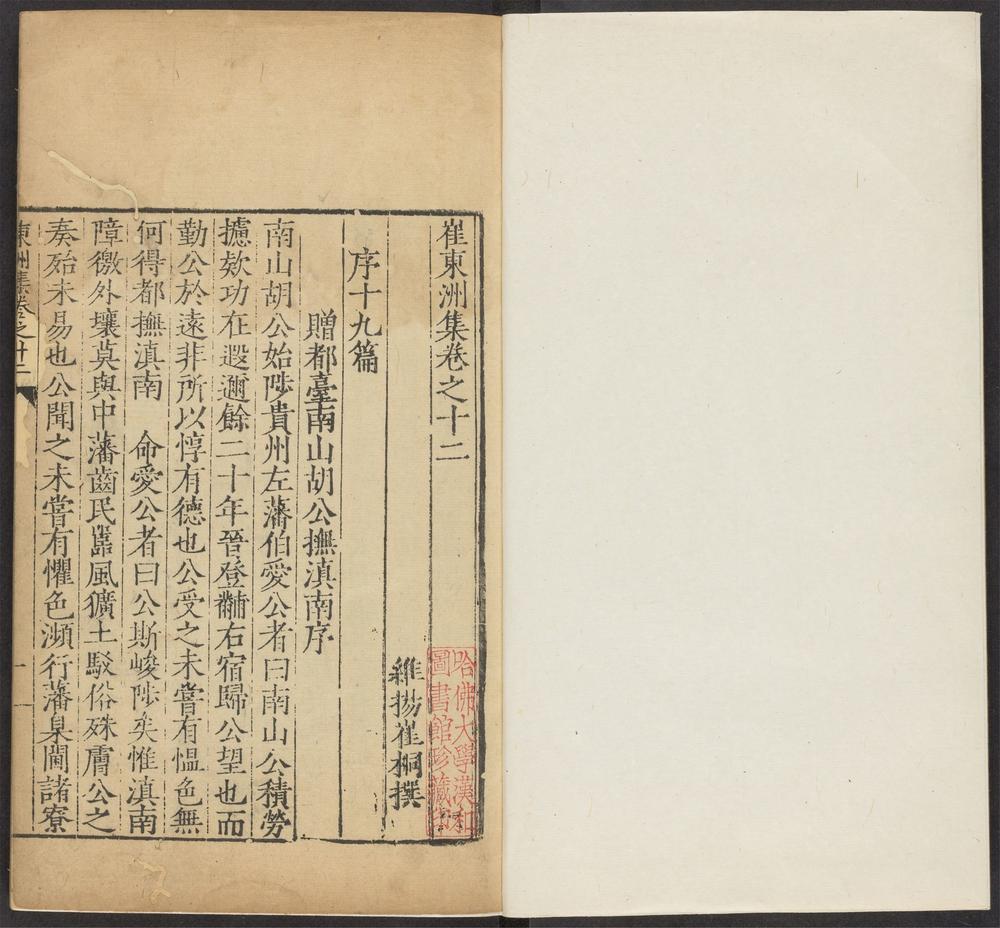 崔東洲集卷之十二
哈佛大學漢和
圖書館珍藏印
維揚崔桐撰
序十九篇
贈都臺南山胡公撫滇南序
南山胡公始陟貴州左藩伯愛公者曰南山公積勞
攄欵功在遐邇餘二十年晉登黼右宿歸公望也而
勤公於遠非所以惇有德也公受之未嘗有慍色無
何得都撫滇南 命愛公者曰公斯峻陟矣惟滇南
障徼外壤莫與中藩齒民嚚風獷土駁俗殊膚公之
奏殆未易也公聞之未嘗有懼色瀕行藩臬閫諸寮
東洲集卷之十二
一